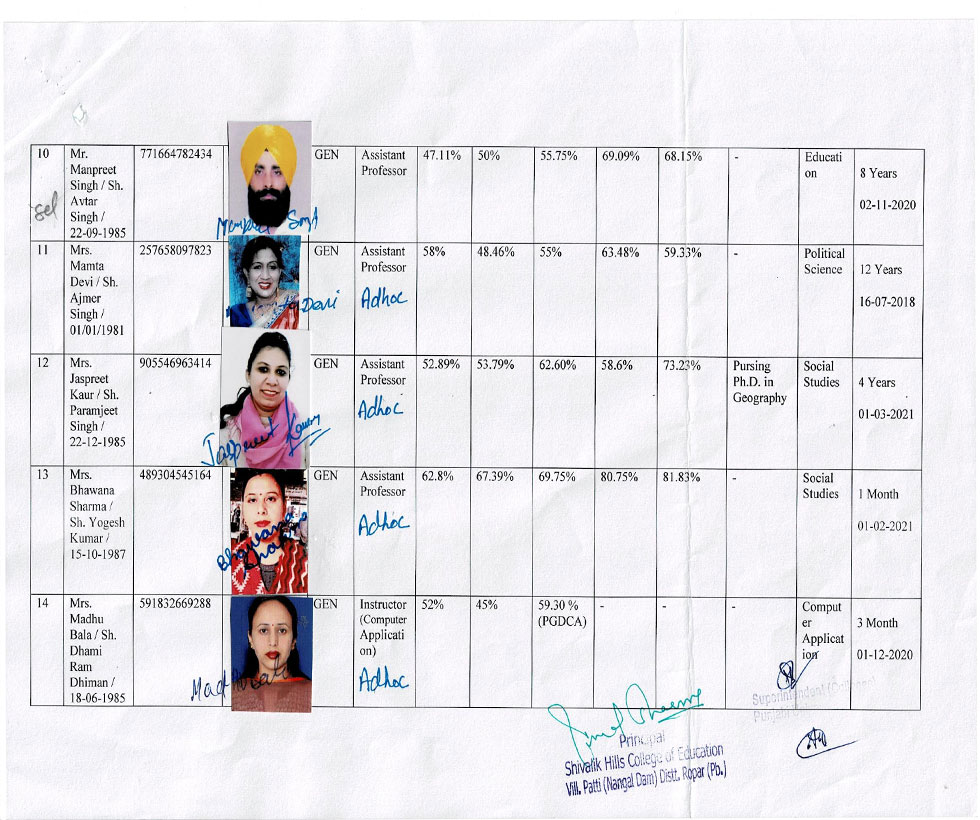 10 Mr. 771664782434 GEN Assistant 47.11% 50% 55.75% 69.09% 68.15% - Educati
Manpreet Professor on 8 Years
Singh / Sh.
Avtar 02-11-2020
sel Singh /
22-09-1985 Singh
11 Mrs. 257658097823 GEN Assistant 58% 48.46% 55% 63.48% 59.33% - Political
Mamta Professor Science 12 Years
Devi / Sh.
Ajmer Devi Adhoc 16-07-2018
Singh /
01/01/1981
12 Mrs. 905546963414 GEN Assistant 52.89% 53.79% 62.60% 58.6% 73.23% Pursing Social
Jaspreet Professor Ph.D. in Studies 4 Years
Kaur / Sh. Geography
Paramjeet Adhoc 01-03-2021
Singh /
22-12-1985 Jaspreet Kaur
13 Mrs. 489304545164 GEN Assistant 62.8% 67.39% 69.75% 80.75% 81.83% - Social
Bhawana Professor Studies 1 Month
Sharma /
Sh. Yogesh Bhawana Adhoc 01-02-2021
Kumar / Sharma
15-10-1987
14 Mrs. 591832669288 GEN Instructor 52% 45% 59.30 % - - - Comput
Madhu (Computer (PGDCA) er 3 Month
Bala / Sh. Applicati Applicat
Dhami on) ion 01-12-2020
Ram Adhoc
Dhiman /
18-06-1985
Superintendent
Principal
Shivalik Hills College of Education
Vill. Patti (Nangal Dam) Distt. Ropar (Pb.)